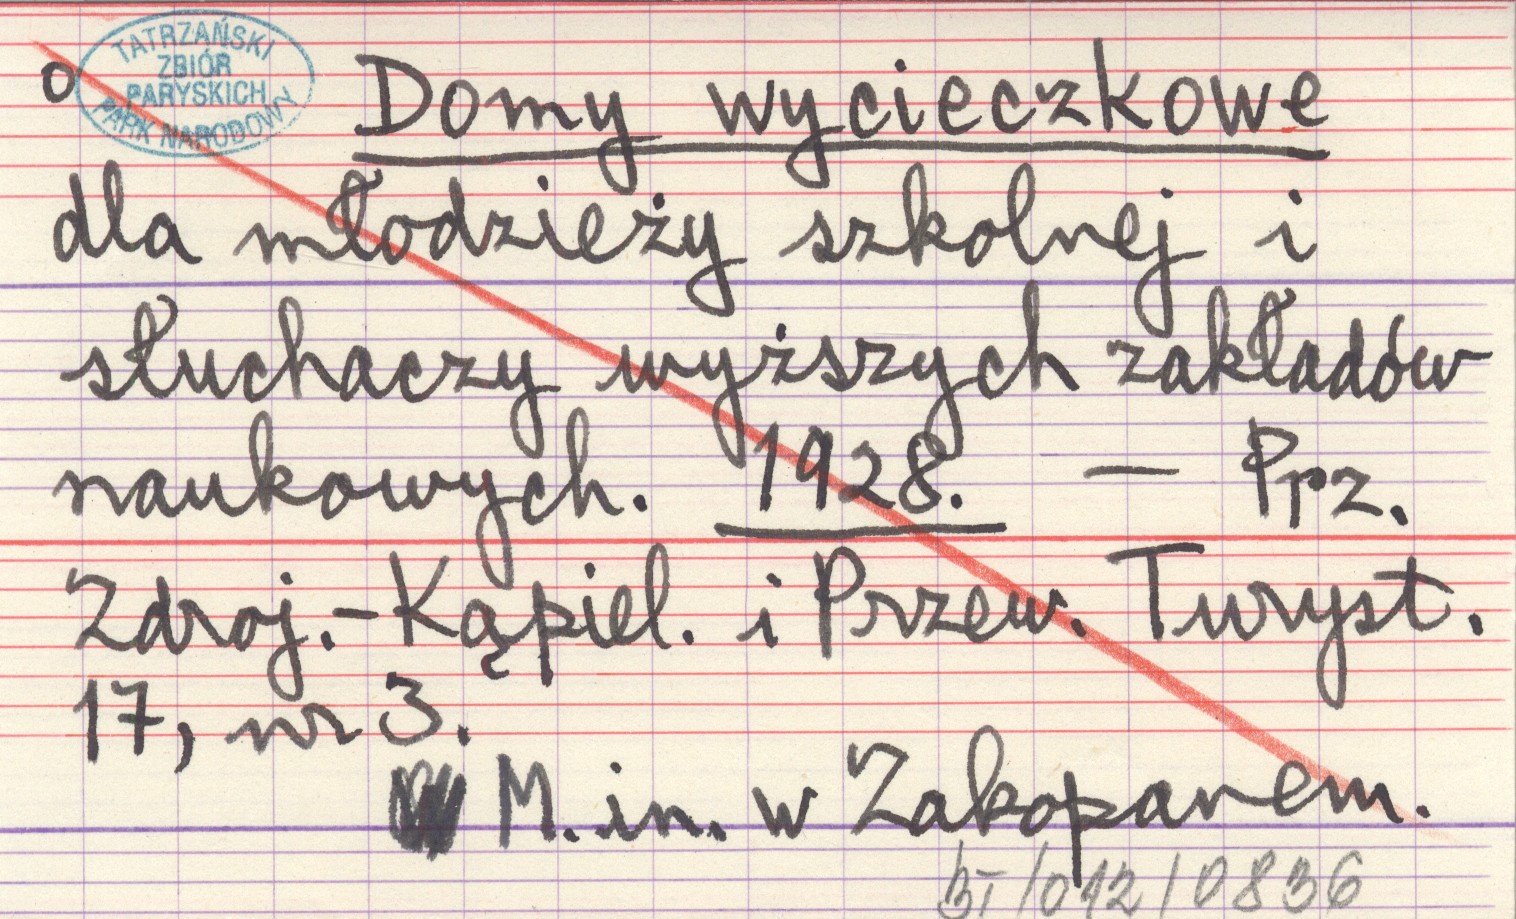 o
TATRZAŃSKI
ZBIÓR
PARYSKICH
PARK NARODOWY
Domy wycieczkowe
dla młodzieży szkolnej i
słuchaczy wyższych zakładów
naukowych. 1928. — Prz.
Zdroj.-Kąpiel. i Przew. Turyst.
17, nr 3.
M. in. w Zakopanem.
/012/0836